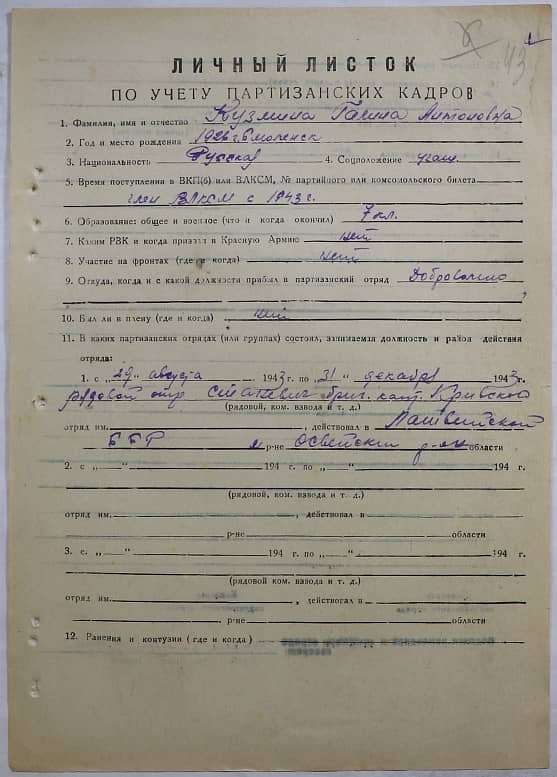 43
ЛИЧНЫЙ ЛИСТОК
ПО УЧЕТУ ПАРТИЗАНСКИХ КАДРОВ
1. Фамилия, имя и отчество Кузмина Галина Антоновна
2. Год и место рождения 1926 г. Смоленск
3. Национальность Русская 4. Соцположение учащ.
5. Время поступления в ВКП(б) или ВЛКСМ, № партийного или комсомольского билета
член ВЛКСМ с 1943 г.
6. Образование: общее и военное (что и когда окончил) 7 кл.
7. Каким РВК и когда призван в Красную Армию нет
8. Участие на фронтах (где и когда) нет
9. Откуда, когда и с какой должности прибыл в партизанский отряд Добровольно
10. Был ли в плену (где и когда) нет
11. В каких партизанских отрядах (или группах) состоял, занимаемая должность и район действия
отряда:
1. с „29“ августа 1943 г. по „31“ декабря 1943 г.
рядовой отр. бриг. кап.
(рядовой, ком. взвода и т. д.)
отряд им. , действовал в Латвийской
ББР и р-не Освейский р-он области
2. с „ “ 194 г. по „ “ 194 г.
(рядовой, ком. взвода и т. д.)
отряд им. , действовал в
р-не области
3. с „ “ 194 г. по „ “ 194 г.
(рядовой, ком. взвода и т. д.)
отряд им. , действовал в
р-не области
12. Ранения и контузии (где и когда)